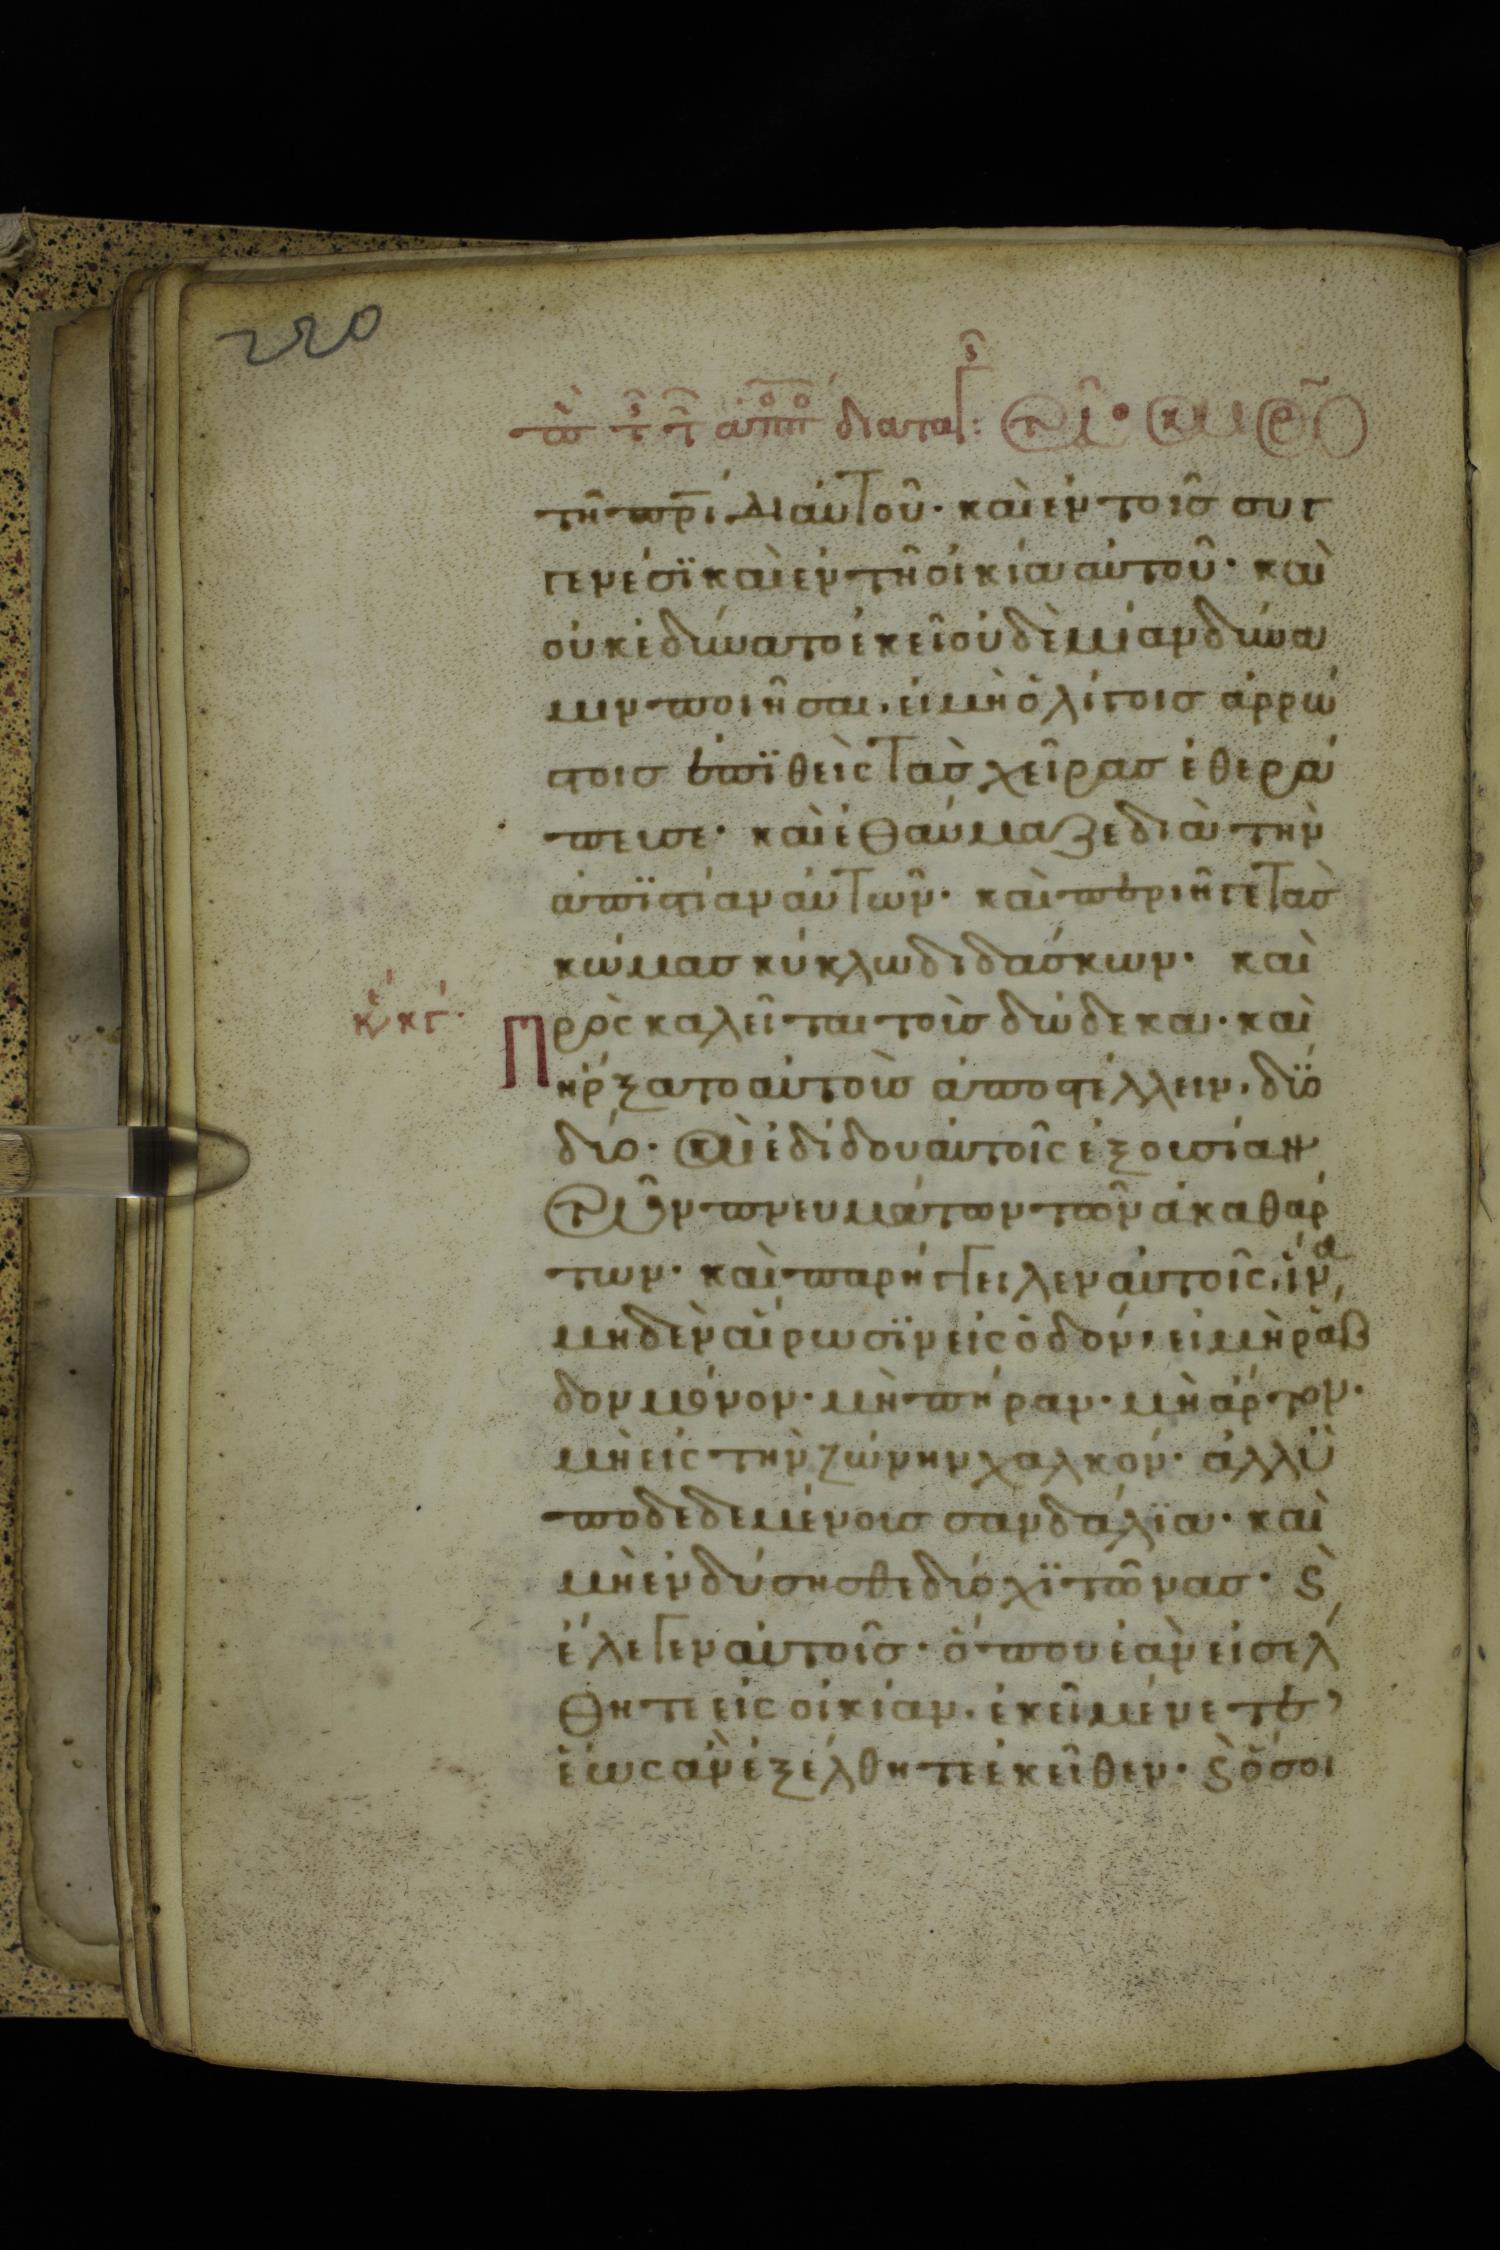 220
τῆ πρίδι αὐτοῦ· καὶ ἐν τοῖσ συγ
γενέσϊ καὶ ἐν τῆ οἰκία αὐτοῦ· καὶ
οὐκ ἐδύνατο ἐκεῖ οὐδὲ μίαν δύνα
μιν ποιῆσαι. εἰ μὴ ὀλίγοισ ἀρρώ
στοισ ἐπϊθεὶς τὰσ χεῖρασ ἐθερά
πευσε· καὶ ἐθαύμαζε διὰ τὴν
ἀπϊστίαν αὐτῶν· καὶ περιῆγε τὰσ
κώμασ κύκλω διδάσκων· καὶ
κε κγ·
Προς καλεῖται τοὺσ δώδεκα· καὶ
ἠρξατο αὐτοὺσ ἀποστέλλειν. δϋο
δύο· καὶ ἐδίδου αὐτοῖς ἐξουσίαν
τῶν πνευμάτων τῶν ἀκαθάρ
των· καὶ παρήγγειλεν αὐτοῖς. ἵνα
μηδὲν αἴρωσϊν εἰς ὁδόν, εἰ μὴ ράβ
δον μόνον· μὴ πήραν· μὴ ἄρτον·
μὴ εἰς τὴν ζώνην χαλκόν· ἀλλ ϋ
ποδεδεμένουσ σανδάλϊα· καὶ
μὴ ἐνδύσησθε δύο χϊτῶνασ· ϗ
ἔλεγεν αὐτοῖσ· ὅπου ἐὰν εἰσέλ
θητε εἰς οἰκίαν. ἐκεῖ μένετε
ἕως ἂν ἐξέλθητε ἐκεῖθεν· ϗ ὅσοι